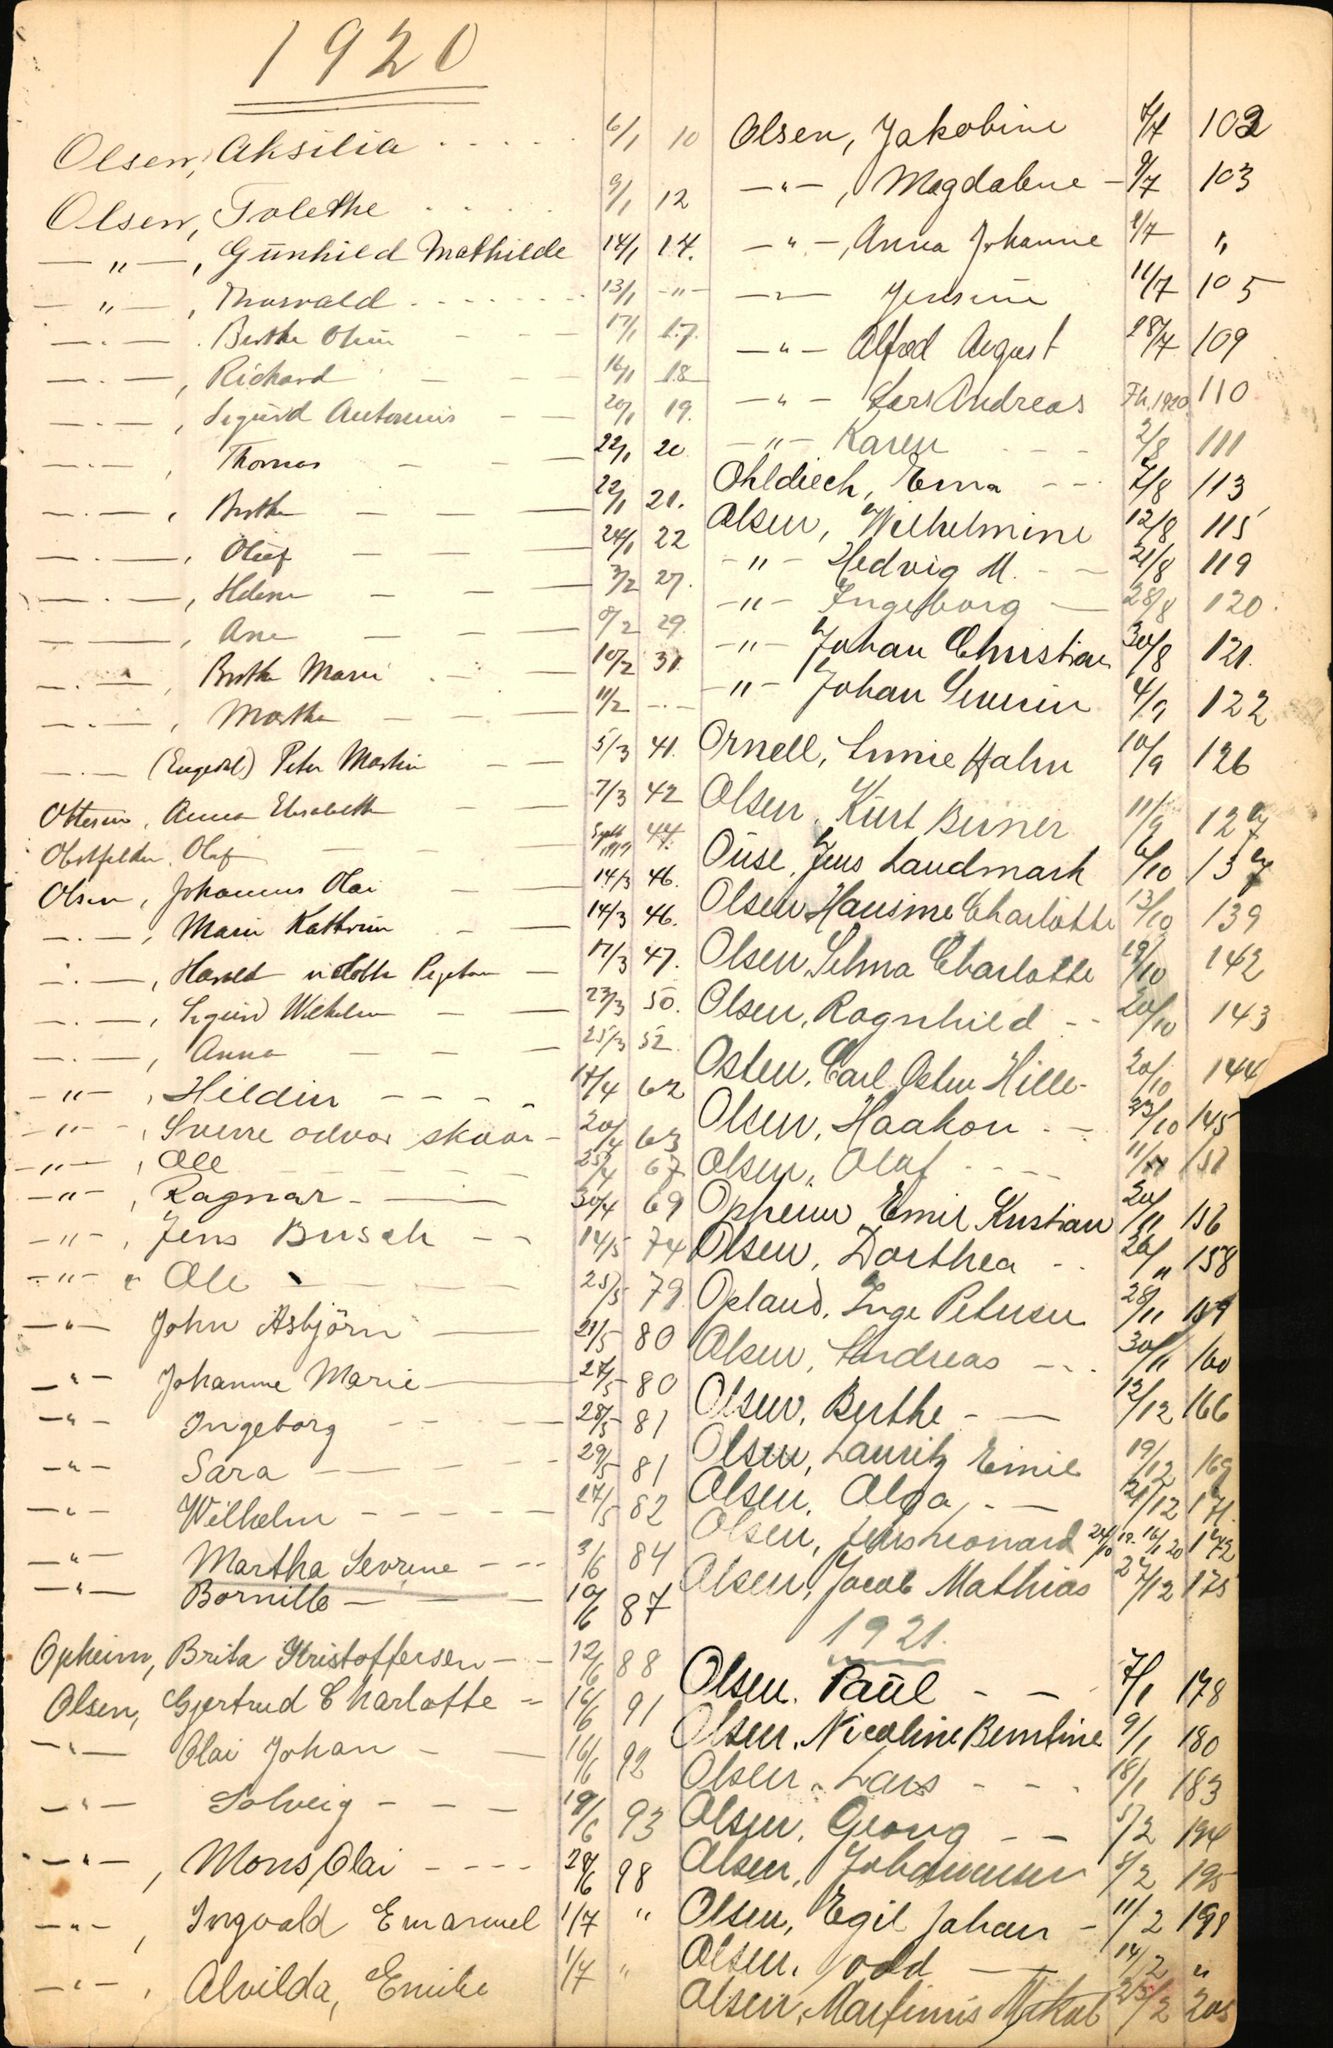 1920
Olsen, Aksilia . . . . 6/1 10
Olsen, Tolethe . . . . 9/1 12
—"—, Gunhild Mathilde 14/1 14.
—"—, Thorvald . . . . 13/1 —"—
—.—. Berthe Oline 17/1 17.
—.—, Richard — — 16/1 18
—.—, Sigurd Antonius — — 20/1 19.
—.—, Thomas — — — 22/1 20
—.—, Berthe — — — 22/1 21.
—.—, Oluf — — — 24/1 22
—.—, Helene — — — 3/2 27.
—.—, Ane — — — 8/2 29
—.—, Berthe Marie — — 10/2 31.
—.—, Marthe — — — 11/2 —.—
—.— (Engedal) Peter Martin — — 5/3 41.
Ottesen, Anna Elisabeth — — 7/3 42
Obstfelder, Olaf — — — Sept 1919 44.
Olsen, Johannes Olai — — 14/3 46.
—.—, Marie Kathrine — — 14/3 46.
—.—, Harald 17/3 47.
—.—, Sigurd Wilhelm — — 23/3 50.
—.—, Anna — — — 25/3 52.
—"—, Hildin — — — — 17/4 62
—"—, Sverre odvar skaar — 20/4 63
—"—, Ole — — — 25/4 67
—"—, Ragnar — — 30/4 69
—"—, Jens Busch — — 14/5 74
—"— Ole — — 25/5 79
—"— John Asbjörn — 21/5 80
—"— Johanne Marie — 27/5 80
—"— Ingeborg — — — 28/5 81
—"— Sara — — — 29/5 81
—"— Wilhelm — — — 27/5 82
—"— Martha Sevrine — — 3/6 84
—"— Bornille — — — 10/6 87
Opheim, Brita Kristoffersen — — 12/6 88
Olsen, Gjertrud Charlotte — 16/6 91
—"— Olai Johan — — 16/6 92
—"— Solveig — — — 19/6 93
—"—, Mons Olai — — — 28/6 98
—"—, Ingvald Emanuel 1/7 "
—"—, Alvilda, Emilie 1/7 "
Olsen, Jakobine 7/7 102
—"—, Magdalene — 9/7 103
—"—, Anna Johanne 8/7 "
—"— Jensine 11/7 105
—"— Alfred August 28/7 109
—"— Lars Andreas Fh. 1920 110
—"— Karen — — — 2/8 111
Ohldiech, Erna — — 7/8 113
Olsen, Wilhelmine 12/8 115
—"— Hedvig M. — — 21/8 119
—"— Ingeborg — 28/8 120.
—"— Johan Christian 30/8 121.
—"— Johan Severin 4/9 122
Ornell, Hahn 10/9 126
Olsen, Kurt Berner 11/9 127
Ouse, Jens Landmark 6/10 137
Olsen Hansine Charlotte 13/10 139
Olsen, Selma Charlotte 19/10 142
Olsen, Ragnhild — — 20/10 143
Osten, Carl Osten Hille- 20/10 144
Olsen, Haakon — — 23/10 145
Olsen, Olaf — — 11/11 151
Opheim Emil Kristian 20/11 156
Olsen, Dorthea — 26/11 158
Opland, Inge Petersen 28/11 159
Olsen, Andreas — — 30/11 160
Olsen, Berthe — — 12/12 166
Olsen, Lauritz Emil 19/12 169
Olsen, Olga, — — 21/12 171.
Olsen, Jens Leonard 24/10 19. 16/1 20 172
Olsen, Jacob Mathias 27/12 175
1921.
Olsen. Paul — — 7/1 178
Olsen, Nicoline Berntine 9/1 180
Olsen, Lars — — — 18/1 183
Olsen, Georg — — 5/2 194
Olsen, Johannesen 5/2 195
Olsen, Egil Johan — 11/2 198
Olsen, odd — 14/2 "
Olsen, Martinius 25/2 205